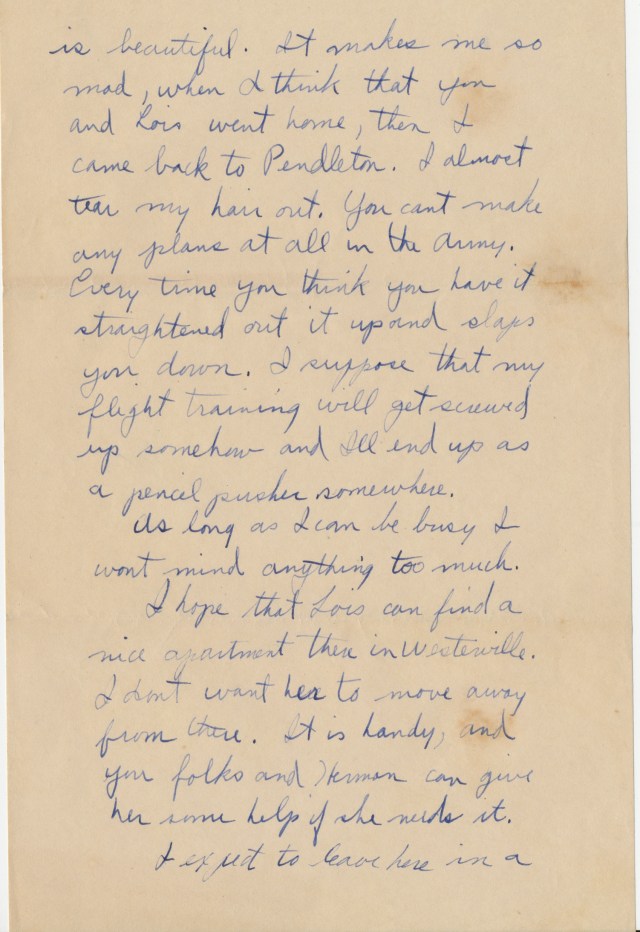 is beautiful. It makes me so
mad, when I think that you
and Lois went home, then I
came back to Pendleton. I almost
tear my hair out. You cant make
any plans at all in the Army.
Every time you think you have it
straightened out it up and slaps
you down. I suppose that my
flight training will get screwed
up somehow and I'll end up as
a pencil pusher somewhere.
As long as I can be busy I
wont mind anything too much.
I hope that Lois can find a
nice apartment there in Westerville.
I dont want her to move away
from there. It is handy, and
you folks and Herman can give
her some help if she needs it.
I expect to leave here in a